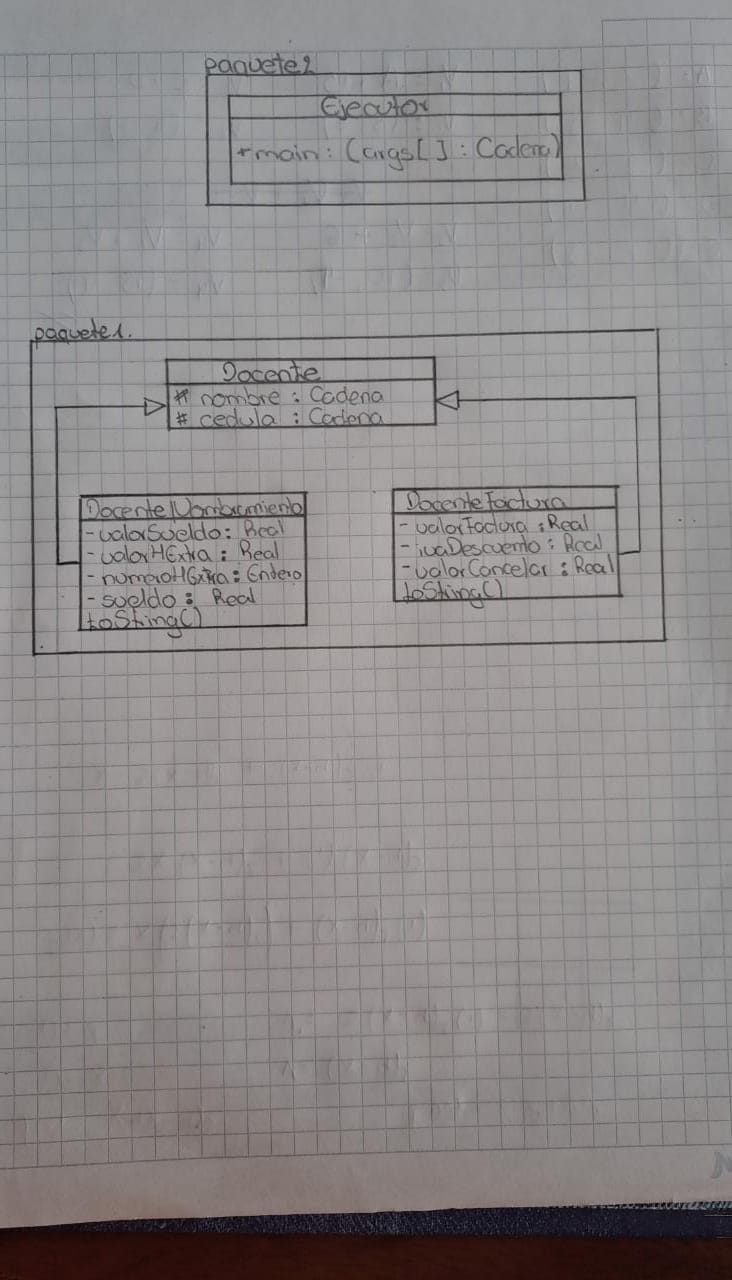 paquete2
Ejecutor
+main: (args[] : Cadena)
paquete1.
Docente
# nombre : Cadena
# cedula : Cadena
DocenteNombramiento
- valorSueldo : Real
- valorHExtra : Real
- numeroHExtra : Entero
- sueldo : Real
toString()
DocenteFactura
- valorFactura : Real
- ivaDescuento : Real
- valorCancelar : Real
toString()